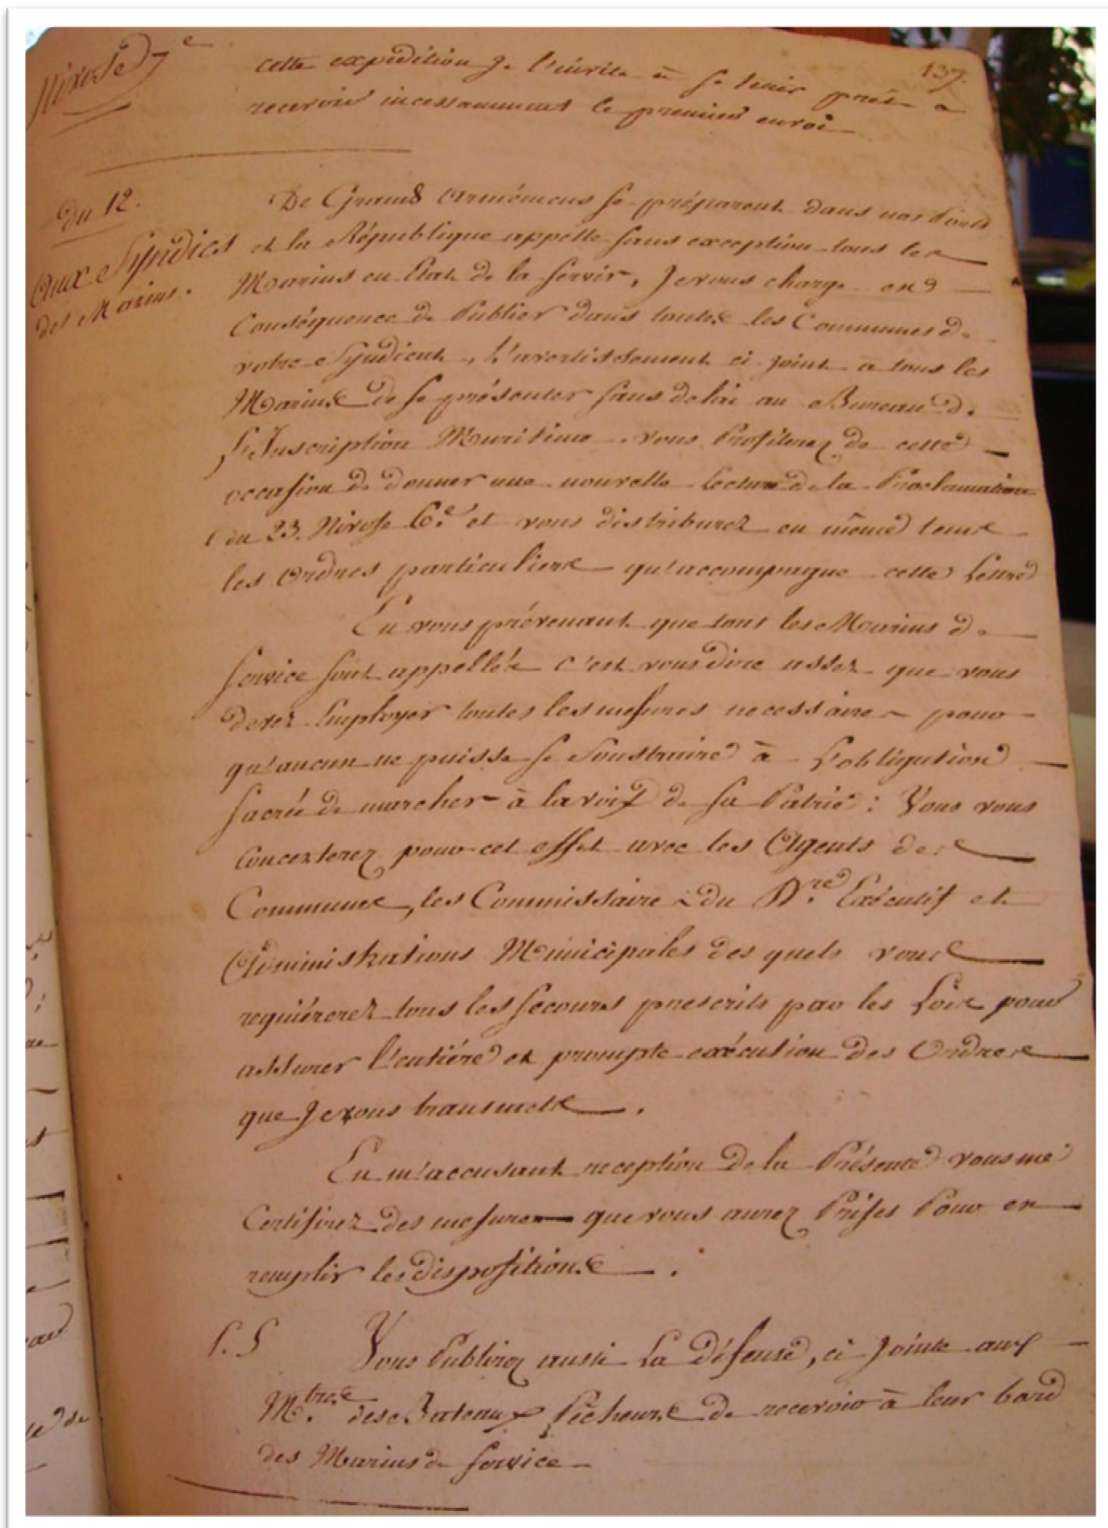 Nivose 7e
137.
cette expédition je l'invite à se tenir prêt à
recevoir incessamment le premier envoi
du 12.
aux Syndics
des Marins.
De Grands Armémens se préparent dans nos Ports
et la République appelle sans exception tous les
Marins en Etat de la servir, Je vous charge en
Conséquence de Publier dans toutes les Communes de
votre Syndicat, l'avertissement ci joint à tous les
Marins de se présenter sans délai au Bureau de
L'Inscription Maritime. vous Profiterez de cette
occasion de donner une nouvelle Lecture de la Proclamation
du 23. Nivose 6.e et vous distriburez en même tems
les Ordres particuliers qu'accompagne cette Lettre
En vous prévenant que tous les Marins de
Service sont appellés c'est vous dire assez que vous
devez Employer toutes les mesures necessaires pour
qu'aucun ne puisse se Soustraire à L'obligation
Sacrée de marcher à la voix de sa Patrie : Vous vous
Concerterez pour cet effet avec les Agents des
Communes, les Commissaires du D.re Exécutif et
Administrations Municipales des quels vous
requiérerez tous les secours prescrits par les Loix pour
assurer l'entière et prompte exécution des Ordres
que Je vous transmets.
En m'accusant reception de la Présente vous me
Certifirez des mesures que vous aurez Prises Pour en
remplir les dispositions.
P.S Vous Publirez aussi La défense, ci Jointe aux
M.tres des Bateaux Pêcheurs de recevoir à leur bord
des Marins de Service